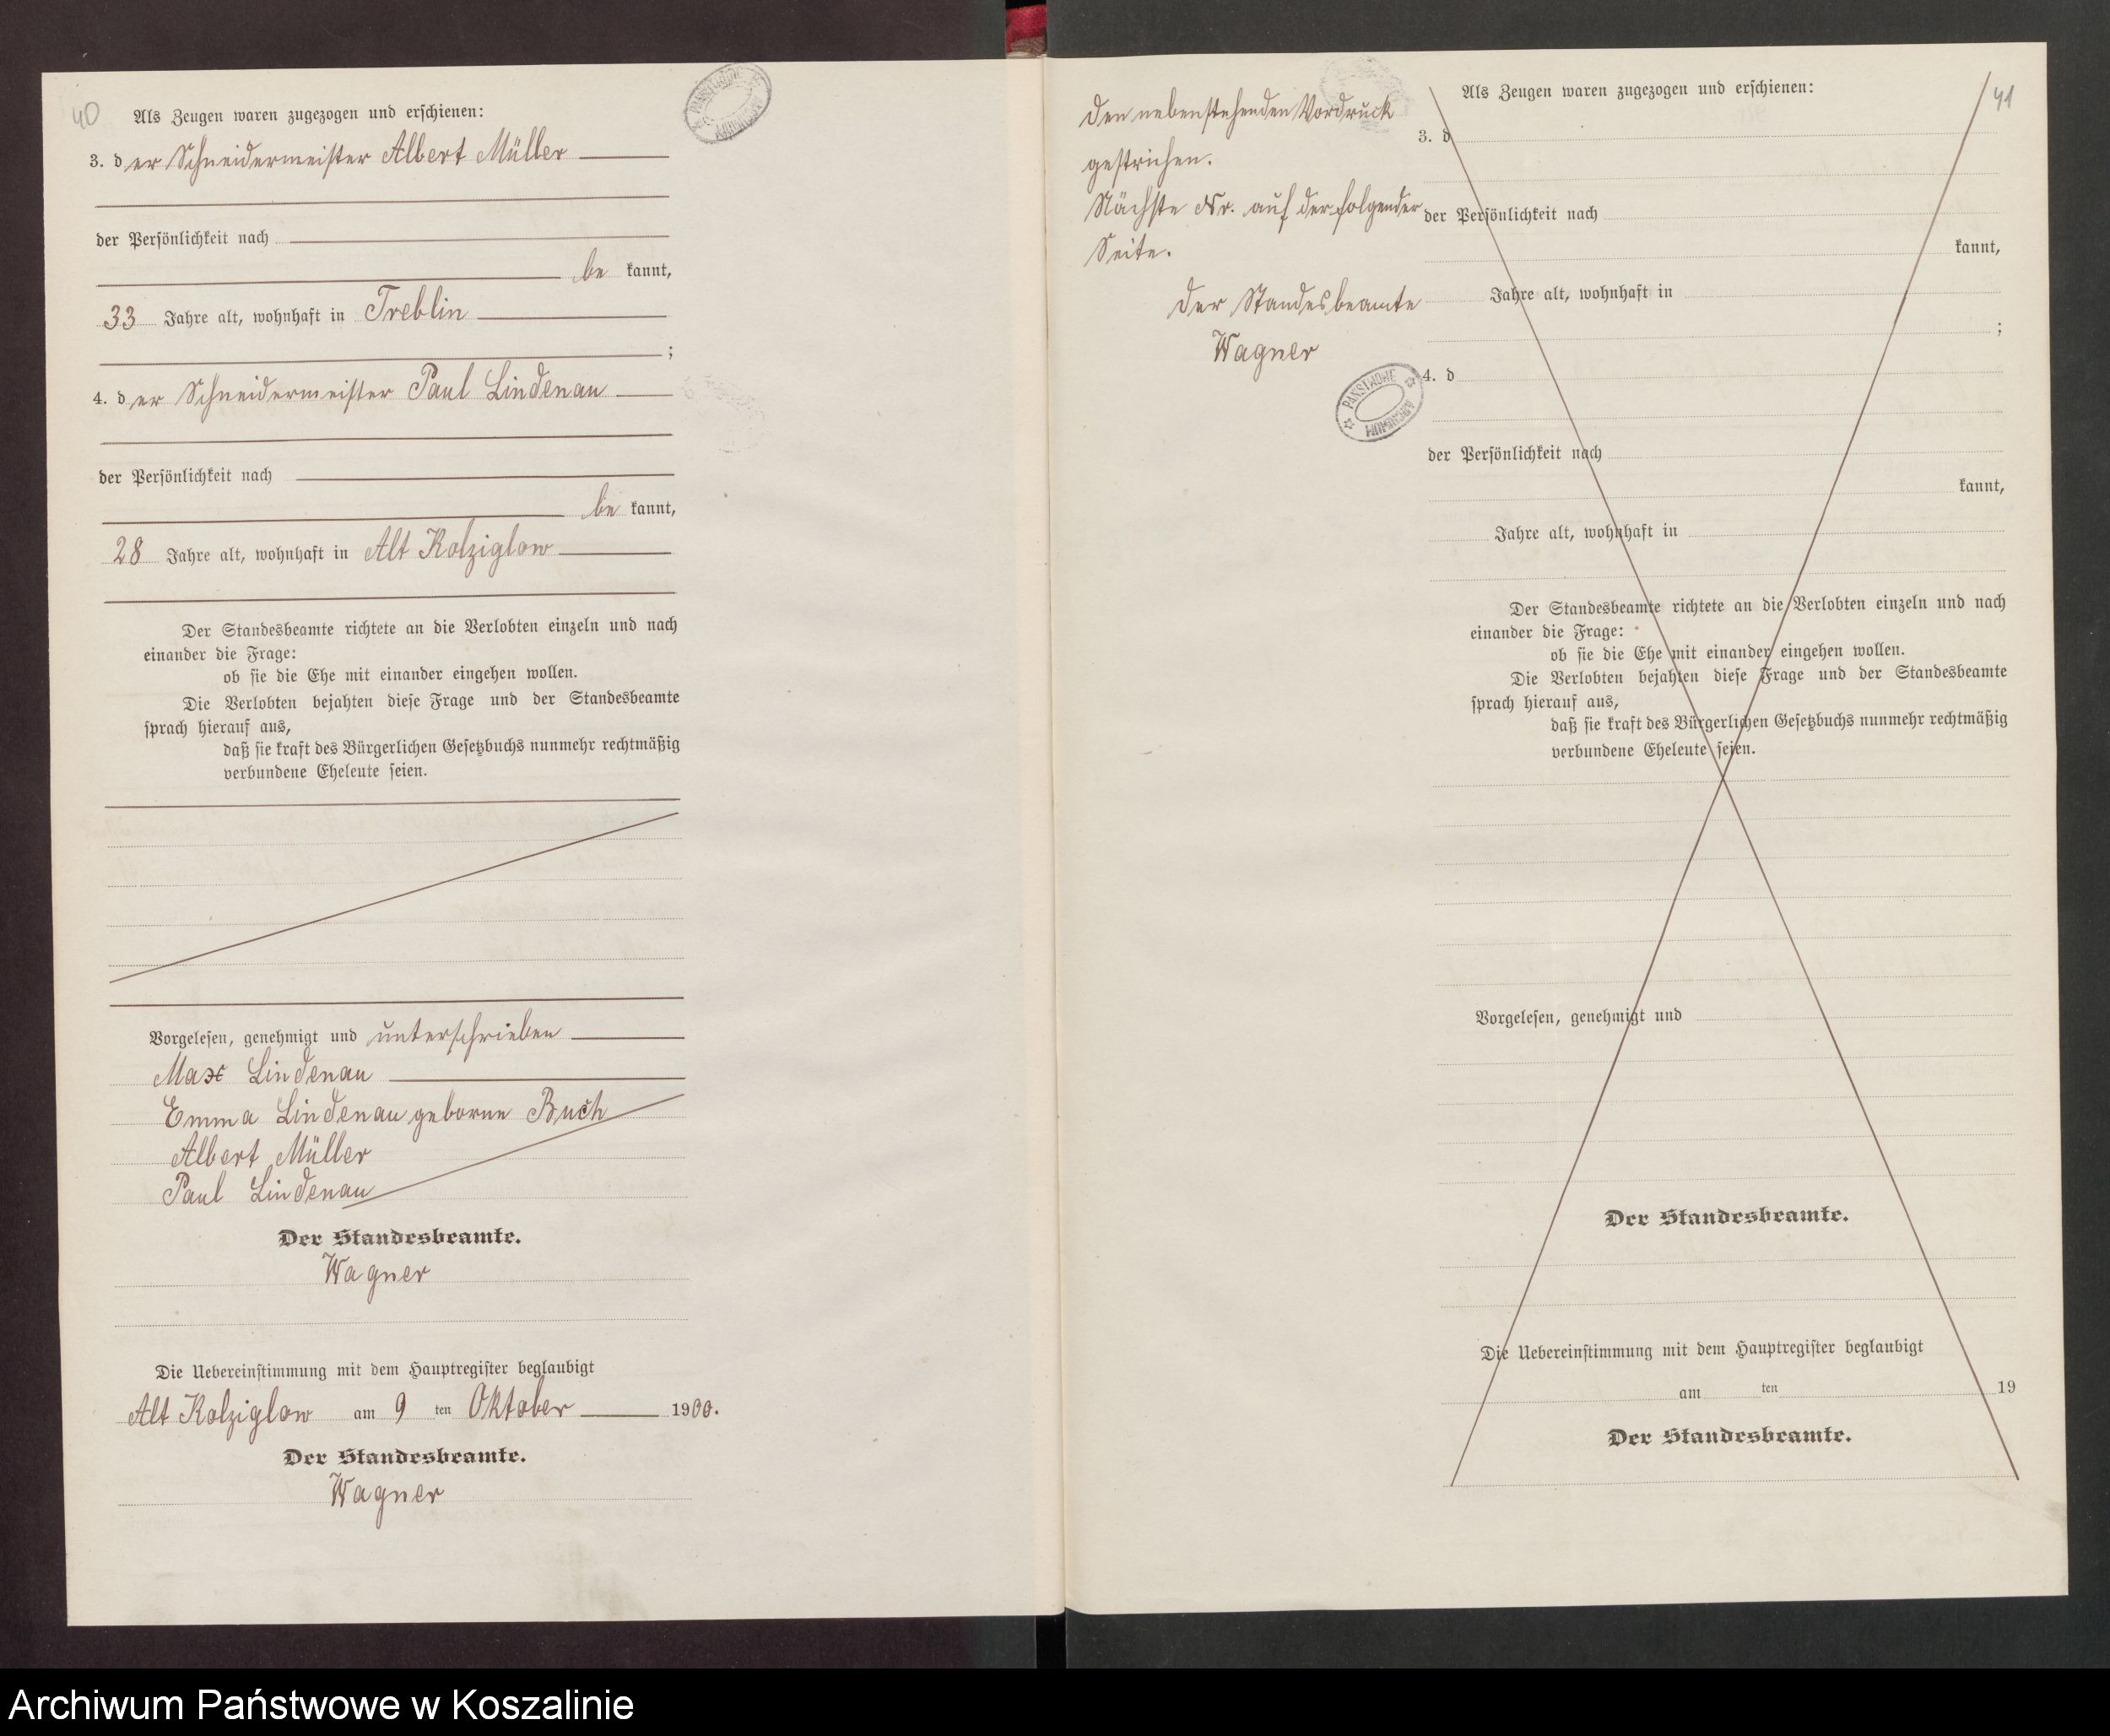 40
Als Zeugen waren zugezogen und erschienen:
3. der Schneidermeister Albert Müller
der Persönlichkeit nach
be kannt,
33 Jahre alt, wohnhaft in Treblin
;
4. der Schneidermeister Paul Lindenau
der Persönlichkeit nach
be kannt,
28 Jahre alt, wohnhaft in Alt Kolziglow
Der Standesbeamte richtete an die Verlobten einzeln und nach
einander die Frage:
ob sie die Ehe mit einander eingehen wollen.
Die Verlobten bejahten diese Frage und der Standesbeamte
sprach hierauf aus,
daß sie kraft des Bürgerlichen Gesetzbuchs nunmehr rechtmäßig
verbundene Eheleute seien.
Vorgelesen, genehmigt und unterschrieben
Max Lindenau
Emma Lindenau geborne Buch
Albert Müller
Paul Lindenau
Der Standesbeamte.
Wagner
Die Uebereinstimmung mit dem Hauptregister beglaubigt
Alt Kolziglow am 9 ten Oktober 1900.
Der Standesbeamte.
Wagner
Den nebenstehenden Vordruck
gestrichen.
Nächste Nr. auf der folgender
Seite.
Der Standesbeamte
Wagner
PAŃSTWOWE
ARCHIWUM
41
Als Zeugen waren zugezogen und erschienen:
3. d
der Persönlichkeit nach
kannt,
Jahre alt, wohnhaft in
;
4. d
der Persönlichkeit nach
kannt,
Jahre alt, wohnhaft in
Der Standesbeamte richtete an die Verlobten einzeln und nach
einander die Frage:
ob sie die Ehe mit einander eingehen wollen.
Die Verlobten bejahten diese Frage und der Standesbeamte
sprach hierauf aus,
daß sie kraft des Bürgerlichen Gesetzbuchs nunmehr rechtmäßig
verbundene Eheleute seien.
Vorgelesen, genehmigt und
Der Standesbeamte.
Die Uebereinstimmung mit dem Hauptregister beglaubigt
am ten 19
Der Standesbeamte.
Archiwum Państwowe w Koszalinie